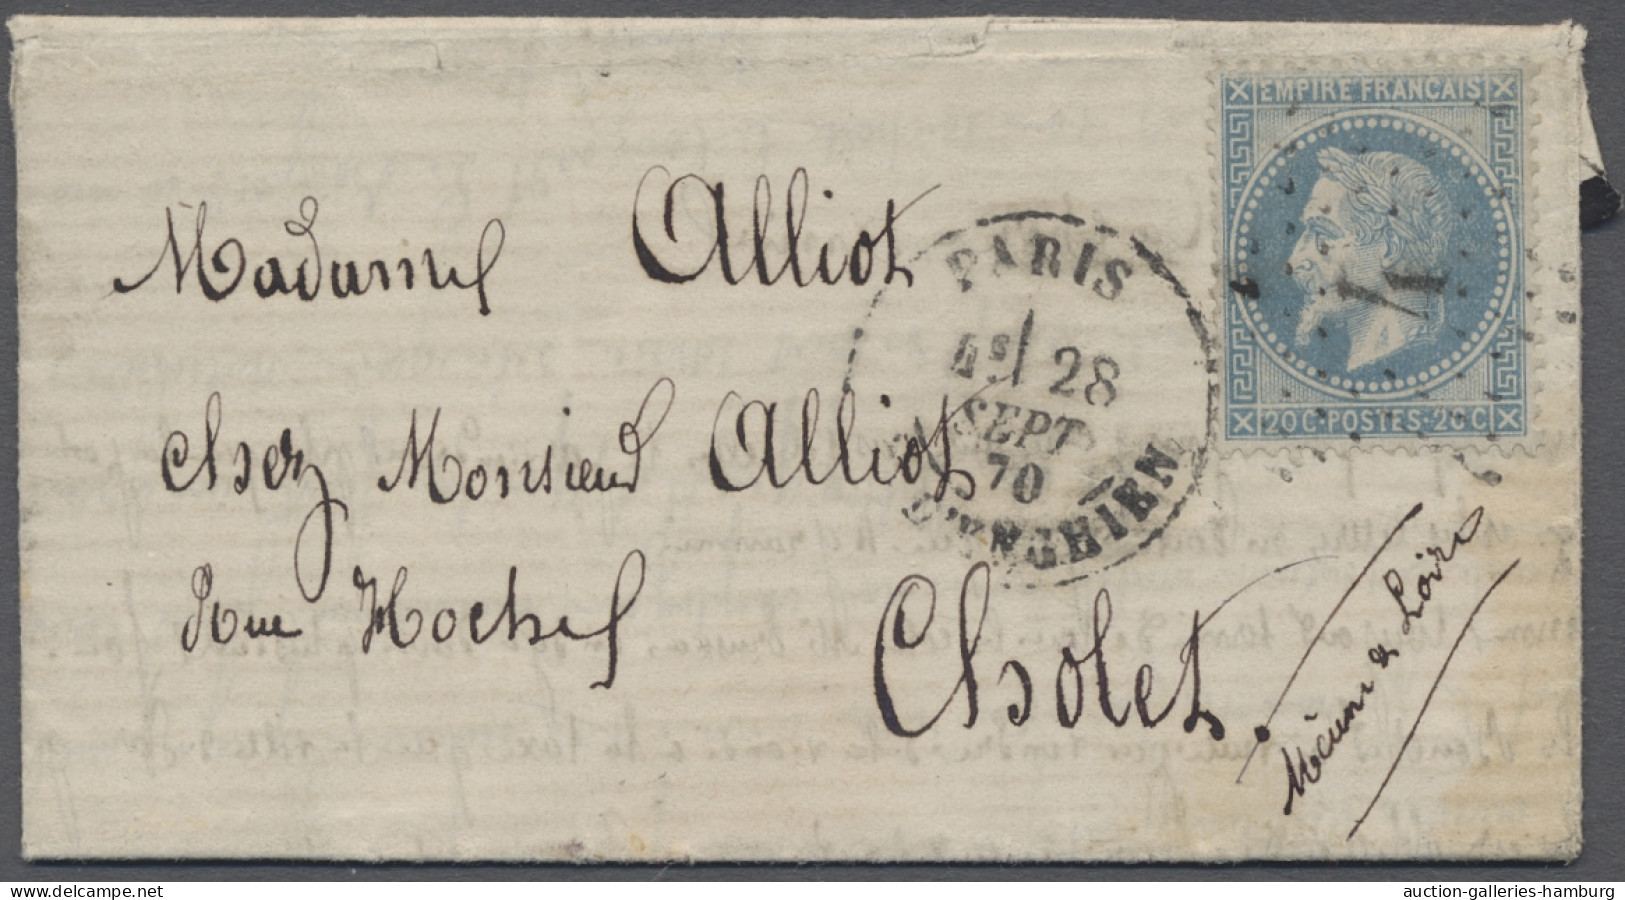 EMPIRE FRANCAIS
20 C · POSTES · 20 C
PARIS
4ᴱ/ 28
SEPT
70
D'ENGHIEN
Madame Alliot
Chez Monsieur Alliot
Rue Hoche
Cholet
Maine & Loire
www.delcampe.net
auction-galleries-hamburg